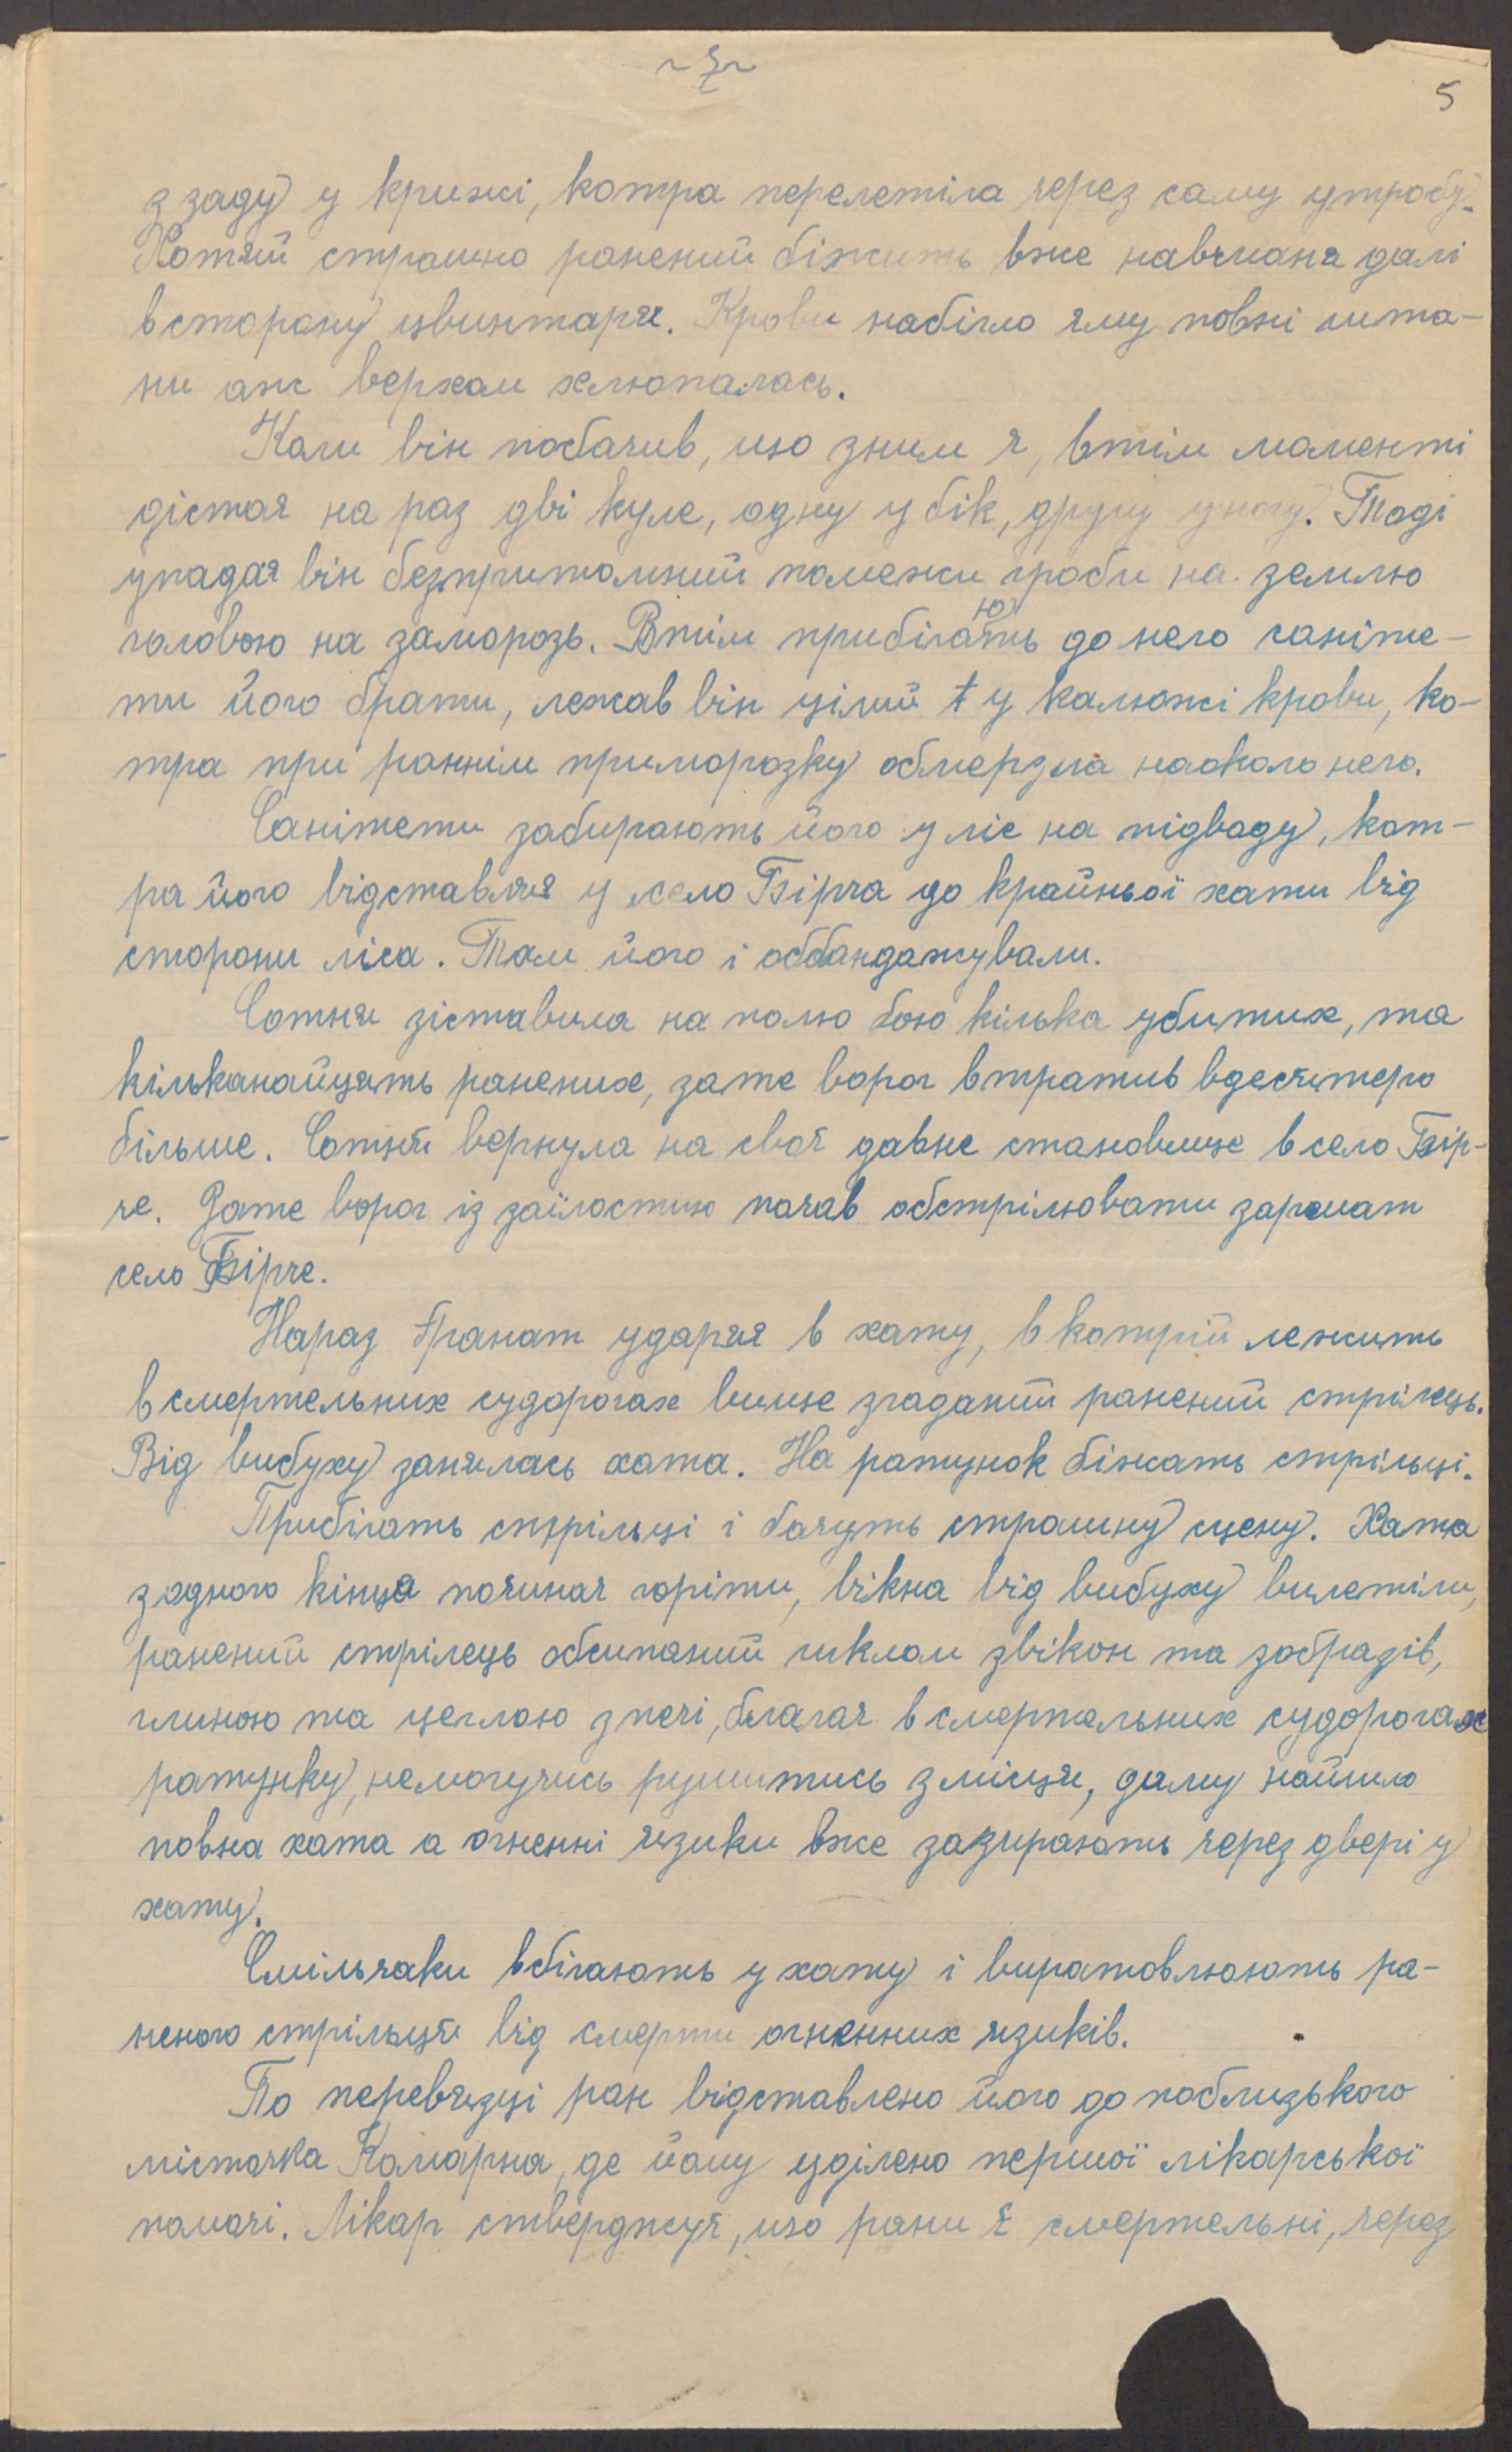 ~ 7 ~
5
з заду у крижі, котра перелетіла через саму утробу.
Хотяй страшно ранений біжить вже навчмана далі
в сторону цвинтаря. Крови набігло єму повні шта-
ни аж верхом хлюпалась.
Коли він побачив, що зним є, втім моменті
дістає на раз дві куле, одну у бік, другу у ногу. Тоді
упадає він безпритомний помежи гроби на землю
головою на заморозь. Втім прибігають до него саніте-
ти його брати, лежав він цілий у калюжі крови, ко-
тра при раннім приморозку обмерзла наоколо него.
Санітети забирають його у ліс на підводу, кот-
ра його відставляє у село Бірча до крайньої хати від
сторони ліса. Там його і оббандажували.
Сотня зіставила на полю бою кілька убитих, та
кільканайцять ранених, зате ворог втратив вдесятеро
більше. Сотня вернула на своє давнє становище в село Бір-
че. Зате ворог із заїлостию почав обстрілювати заршат
село Бірче.
Нараз гранат ударяє в хату, в котрій лежить
в смертельних судорогах вище згаданий ранений стрілець.
Від вибуху занялась хата. На ратунок біжать стрільці.
Прибігать стрільці і бачуть страшну сцену. Хата
з одного кінца починає горіти, вікна від вибуху вилетіли,
ранений стрілець обсипаний шклом звікон та зобразів,
глиною та цеглою з печі, благає в смертельних судорогах
ратунку, немогучись рушитись з місця, диму найшло
повна хата а огненні язики вже зазирають через двері у
хату.
Смільчаки вбігають у хату і виратовлюють ра-
неного стрільця від смерти огненних язиків.
По перевязці ран відставлено його до поблизького
місточка Комарна, де йому уділено першої лікарської
помочі. Лікар стверджує, що рани є смертельні, через